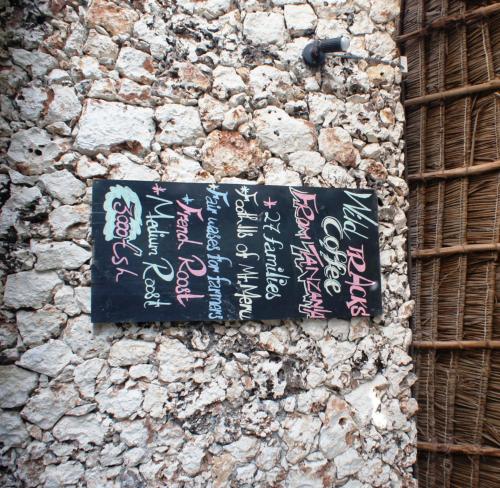 Wild TRACKS
Coffee
FROM TANZANIA
* 27 families
* Foothills of Mt. Meru
* Fair wages for farmers
* French Roast
* Medium Roast
Tsh